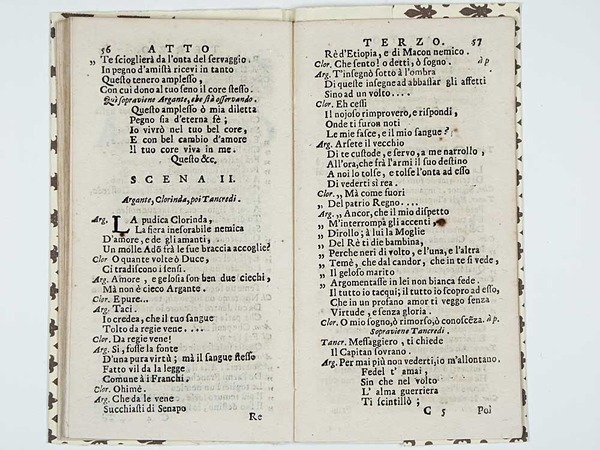 56 ATTO
„ Te scioglierà da l'onta del servaggio.
In pegno d'amistà ricevi in tanto
Questo tenero amplesso,
Con cui dono al tuo seno il core stesso.
Quì sopraviene Argante, che stà osservando.
Questo amplesso ò mia diletta
Pegno sia d'eterna fè;
Io vivrò nel tuo bel core,
E con bel cambio d'amore
Il tuo core viva in me.
Questo &c.
SCENA II.
Argante, Clorinda, poi Tancredi.
Arg. LA pudica Clorinda,
La fiera inesorabile nemica
D'amore, e de gli amanti,
Un molle Adō frà le sue braccia accoglie?
Clor O quante volte ò Duce,
Ci tradiscono i sensi.
Arg. Amore, e gelosia son ben due ciechi,
Mà non è cieco Argante.
Clor. E pure...
Arg. Taci.
Io credea, che il tuo sangue
Tolto da regie vene....
Clor. Da regie vene!
Arg. Sì, fosse la fonte
D'una pura virtù; mà il sangue stesso
Fatto vil da la legge
Comune à i Franchi.
Clor. Ohimè.
Arg. Che da le vene
Succhiasti di Senapo
Re
TERZO. 57
Rè d'Etiopia, e di Macon nemico.
Clor. Che sento! o detti, ò sogno. à p
Arg. T'insegnò sotto à l'ombra
Di queste insegne ad abbassar gli affetti
Sino ad un volto....
Clor. Eh cessi
Il nojoso rimprovero, e rispondi,
Onde ti furon noti
Le mie fasce, e il mio sangue?
Arg. Arsete il vecchio
Di te custode, e servo, a me narrollo,
All'ora, che frà l'armi il suo destino
A noi lo tolse, e tolse l'onta ad esso
Di vederti sì rea.
Clor. „ Mà come fuori
„ Del patrio Regno....
Arg. „ Ancor, che il mio dispetto
„ M'interrompa gli accenti,
„ Dirollo; à lui la Moglie
„ Del Rè ti die bambina,
„ Perche neri di volto, e l'una, e l'altra
„ Temè, che dal candor, che in te si vede,
„ Il geloso marito
„ Argomentasse in lei non bianca fede.
Il tutto io tacqui; il tutto io scopro ad esso,
Che in un profano amor ti veggo senza
Virtude, e senza gloria.
Clor. O mio sogno, ò rimorso, ò conoscēza. à p.
Sopraviene Tancredi.
Tancr. Messaggiero, ti chiede
Il Capitan sovrano.
Arg. Per mai più non vederti, io m'allontano.
Fedel t' amai,
Sin che nel volto
L' alma guerriera
Ti scintillò;
C 5 Poi